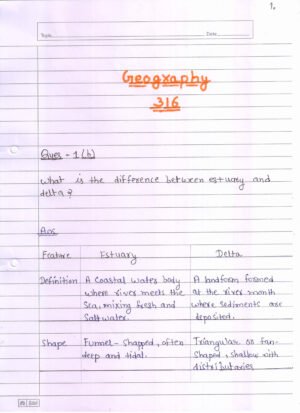 1.
Topic
Date
Geography
316
Ques - 1 (b)
what is the difference between estuary and
delta ?
Ans
Feature Estuary Delta
Definition A Coastal water body A landform formed
where river meets the at the river mouth
Sea, mixing fresh and where sediments are
Salt water. deposited.
Shape Funnel - Shapped, often Triangular or fan-
deep and tidal. Shaped, shallow with
distributaries